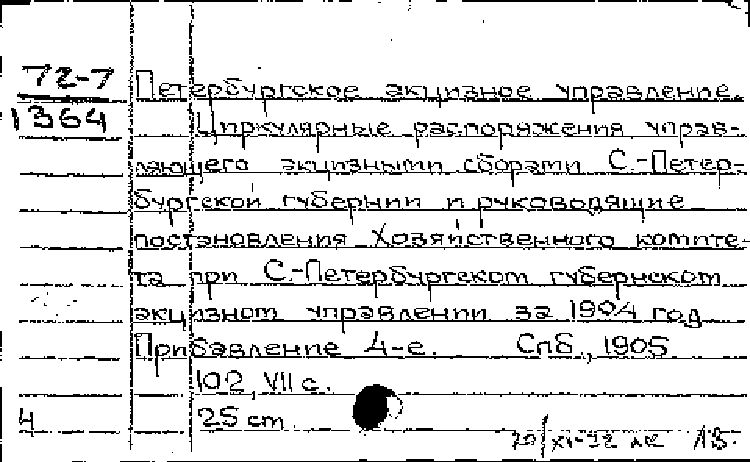 72-7
1364
Петербургское акцизное управление.
Циркулярные распоряжения управ-
ляющего акцизными сборами С.-Петер-
бургской губернии и руководящие
постановления Хозяйственного комите-
та при С.-Петербургском губернском
акцизном управлении за 1904 год
Прибавление 4-е. Спб., 1905
102, VII с.
4 25 cm